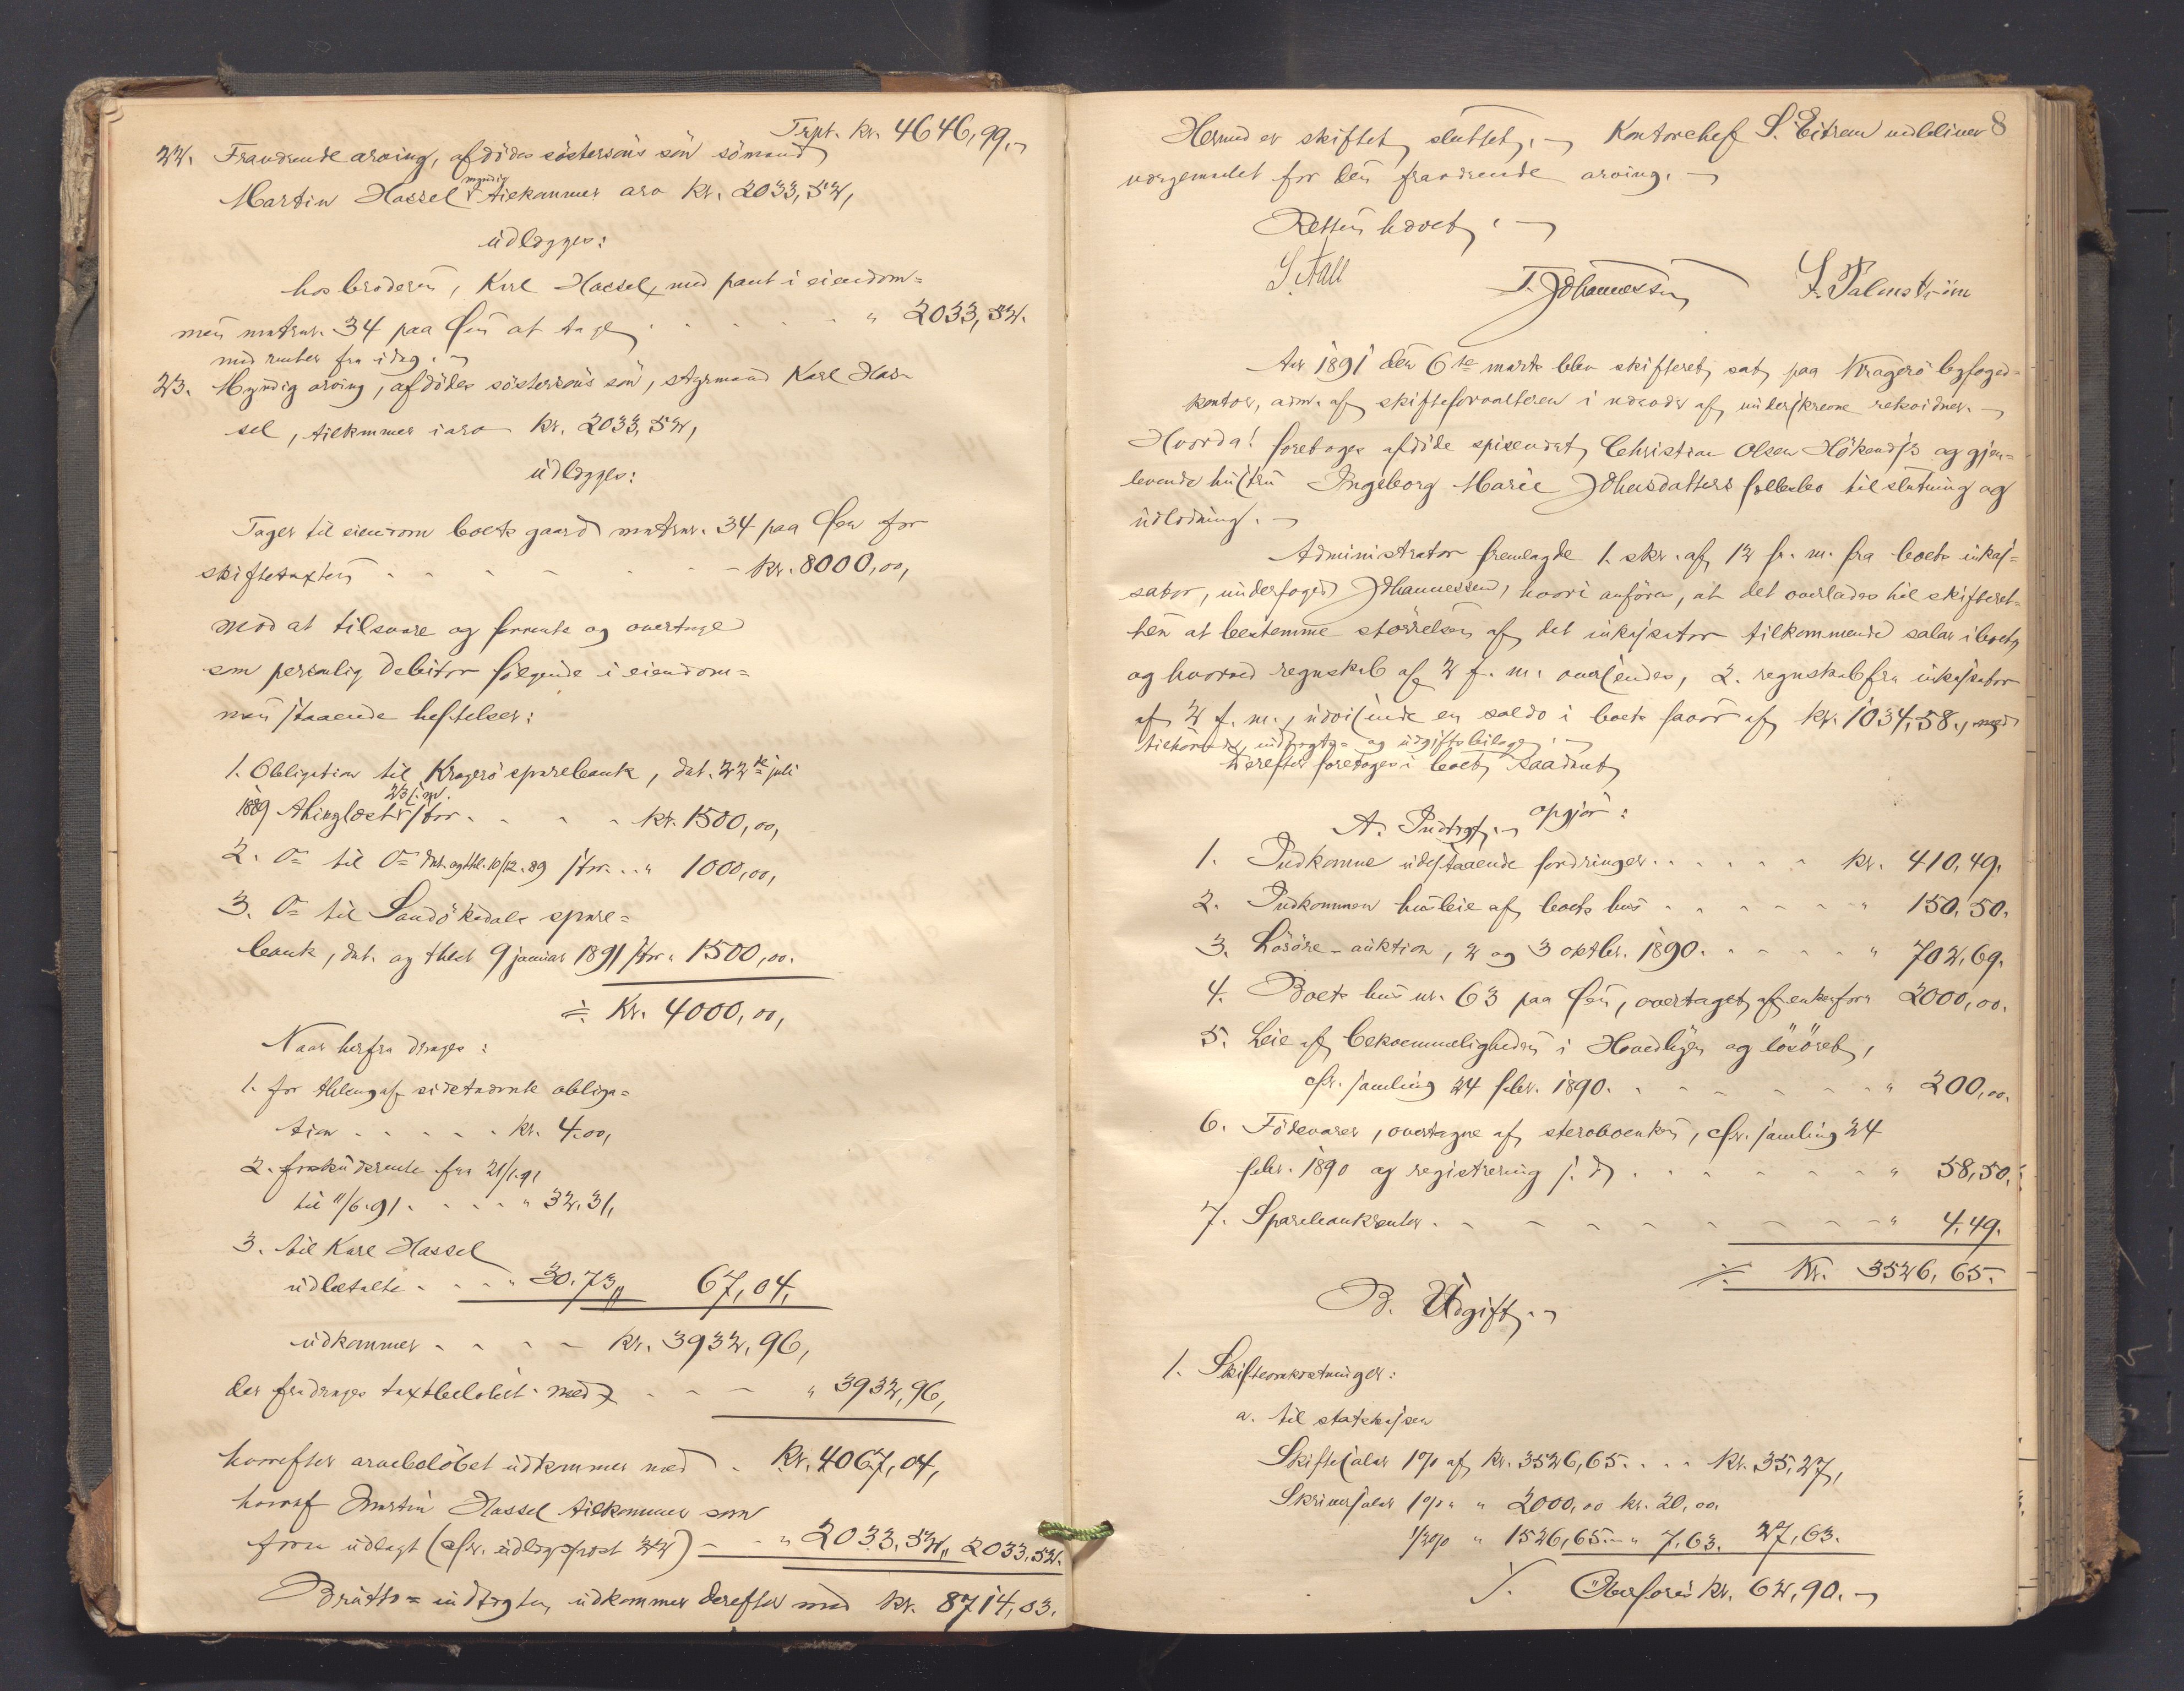 Trpt. Kr. 4646,99.
22. Fraværende arving, afdödes söstersöns sön sömand
myndig
Martin Hassel tilkommer arv Kr. 2033,52,
udlægges:
hos broderen, Karl Hassel, med pant i eiendom=
men matrnr. 34 paa Øen at tage . . . . . " 2033,52.
med renter fra idag.
23. Myndig arving, afdödes söstersöns sön, styrmand Karl Has-
sel, tilkommer i arv Kr. 2033,52,
udlægges:
Tager til eiendom boets gaard matrnr. 34 paa Øen for
skiftetaxten - - - - - - Kr. 8000,00,
mod at tilsvare og forrente og overtage
som personlig debitor fölgende i eiendom=
men staaende heftelser:
1. Obligation til Kragerö sparebank, dat. 22de juli
23 s. m.
1889 thinglæst stor . . . . Kr. 1500,00,
2. Do til Do dat. og thl. 10/12.89 stor . . " 1000,00,
3. Do til Sandökedals spare=
bank, dat. og thlst 9 januar 1891 stor " 1500,00.
÷ Kr. 4000,00,
Naar herfra drages:
1. for thlæsng af sidstnævnte obliga=
tion . . . . . Kr. 4.00,
2. forskudsrente fra 21/1.91
til 11/6.91 . . . . " 32,31,
3. til Karl Hassel
udbetalte . . . " 30,73,, 67,04,
udkommer - - - - Kr. 3932,96,
der fradrages taxtbelöbet med - - - " 3932,96,
hvorefter arvebelöbet udkommer med . Kr. 4067,04,
hvoraf Martin Hassel tilkommer som
foran udlagt (cfr. udlægspost 22) - - " 2033,52,, 2033,52.
Brutto=indtægten udkommer derefter med Kr. 8714,03.
8
Hermed er skiftet sluttet. Kontorchef S. Eitrem meddeltes
værgemaalet for den fraværende arving.
Retten hævet.
S. Aall
T. Johannessen
S. Palmström
Aar 1891 den 6te marts blev skifteret sat paa Kragerö byfoged=
kontor, adm. af skifteforvalteren i nærvær af underskrevne retsvidner.
Hvorda: foretoges afdöde spisevært Christian Olsen Hökens og gjen=
levende hustru Ingeborg Marie Johnsdatters fællesbo til slutning og
udlodning.
Administrator fremlagde 1. skr. af 12 f. m. fra boets inkas=
sator, underfoged Johannessen, hvori anföres, at det overlades til skifteret=
ten at bestemme störrelsen af det inkassator tilkommende salær i boet,
og hvorved regnskab af 2 f. m. oversendes, 2. regnskab fra inkassator
af 2 f. m., udvisende en saldo i boets favör af Kr. 1034,58., med
tilhörende indtægts- og udgiftsbilage.
Derefter foretoges i boet saadant
opgjör:
A. Indtægt.
1. Indkomne udestaaende fordringer . . . . . . Kr. 410,49.
2. Indkommen husleie af boets hus - - - - - - " 150,50.
3. Lösöre-auktion, 2 og 3 oktbr. 1890. - - - - " 702,69.
4. Boets hus nr. 63 paa Øen, overtaget af enken for " 2000,00.
5. Leie af bekvemmeligheden i Hovedbyen og lösöret,
cfr. samling 24 febr. 1890. . - - - - - - " 200,00.
6. Födevarer, overtagne af stervboenken, cfr. samling 24
febr. 1890 og registrering s. d. . . - - - - - " 58,50.
7. Sparebankrenter. - - - - - - - - - " 4,49.
÷ Kr. 3526,65.
B. Udgift.
1. Skifteomkostninger:
a. til statskassen
Skiftesalær 1% af Kr. 3526,65. . . . Kr. 35,27,
Skriversalær 1% " " 2000,00 kr. 20,00
1/2% " 1526,65. - " 7,63. 27,63.
/. Overföres Kr. 62,90.